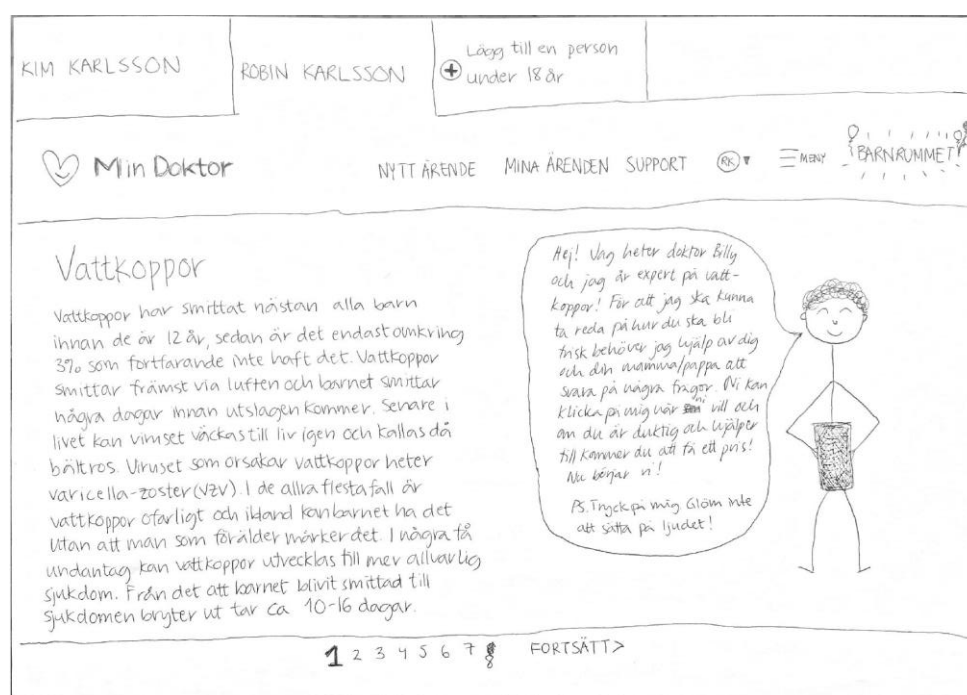 KIM KARLSSON
ROBIN KARLSSON
Lägg till en person
under 18 år
Min Doktor
NYTT ÄRENDE
MINA ÄRENDEN
SUPPORT
RK
MENY
BARNRUMMET
Vattkoppor
Vattkoppor har smittat nästan alla barn
innan de är 12 år, sedan är det endast omkring
3% som fortfarande inte haft det. Vattkoppor
smittar främst via luften och barnet smittar
några dagar innan utslagen kommer. Senare i
livet kan viruset väckas till liv igen och kallas då
bältros. Viruset som orsakar vattkoppor heter
varicella-zoster (VZV). I de allra flesta fall är
vattkoppor ofarligt och ibland kan barnet ha det
utan att man som förälder märker det. I några få
undantag kan vattkoppor utvecklas till mer allvarlig
sjukdom. Från det att barnet blivit smittad till
sjukdomen bryter ut tar ca 10-16 dagar.
Hej! Jag heter doktor Billy
och jag är expert på vatt-
koppor! För att jag ska kunna
ta reda på hur du ska bli
frisk behöver jag hjälp av dig
och din mamma/pappa att
svara på några frågor. Ni kan
klicka på mig när ni vill och
om du är duktig och hjälper
till kommer du att få ett pris!
Nu börjar vi!
PS. Tryck på mig Glöm inte
att sätta på ljudet!
1 2 3 4 5 6 7 8
FORTSÄTT >